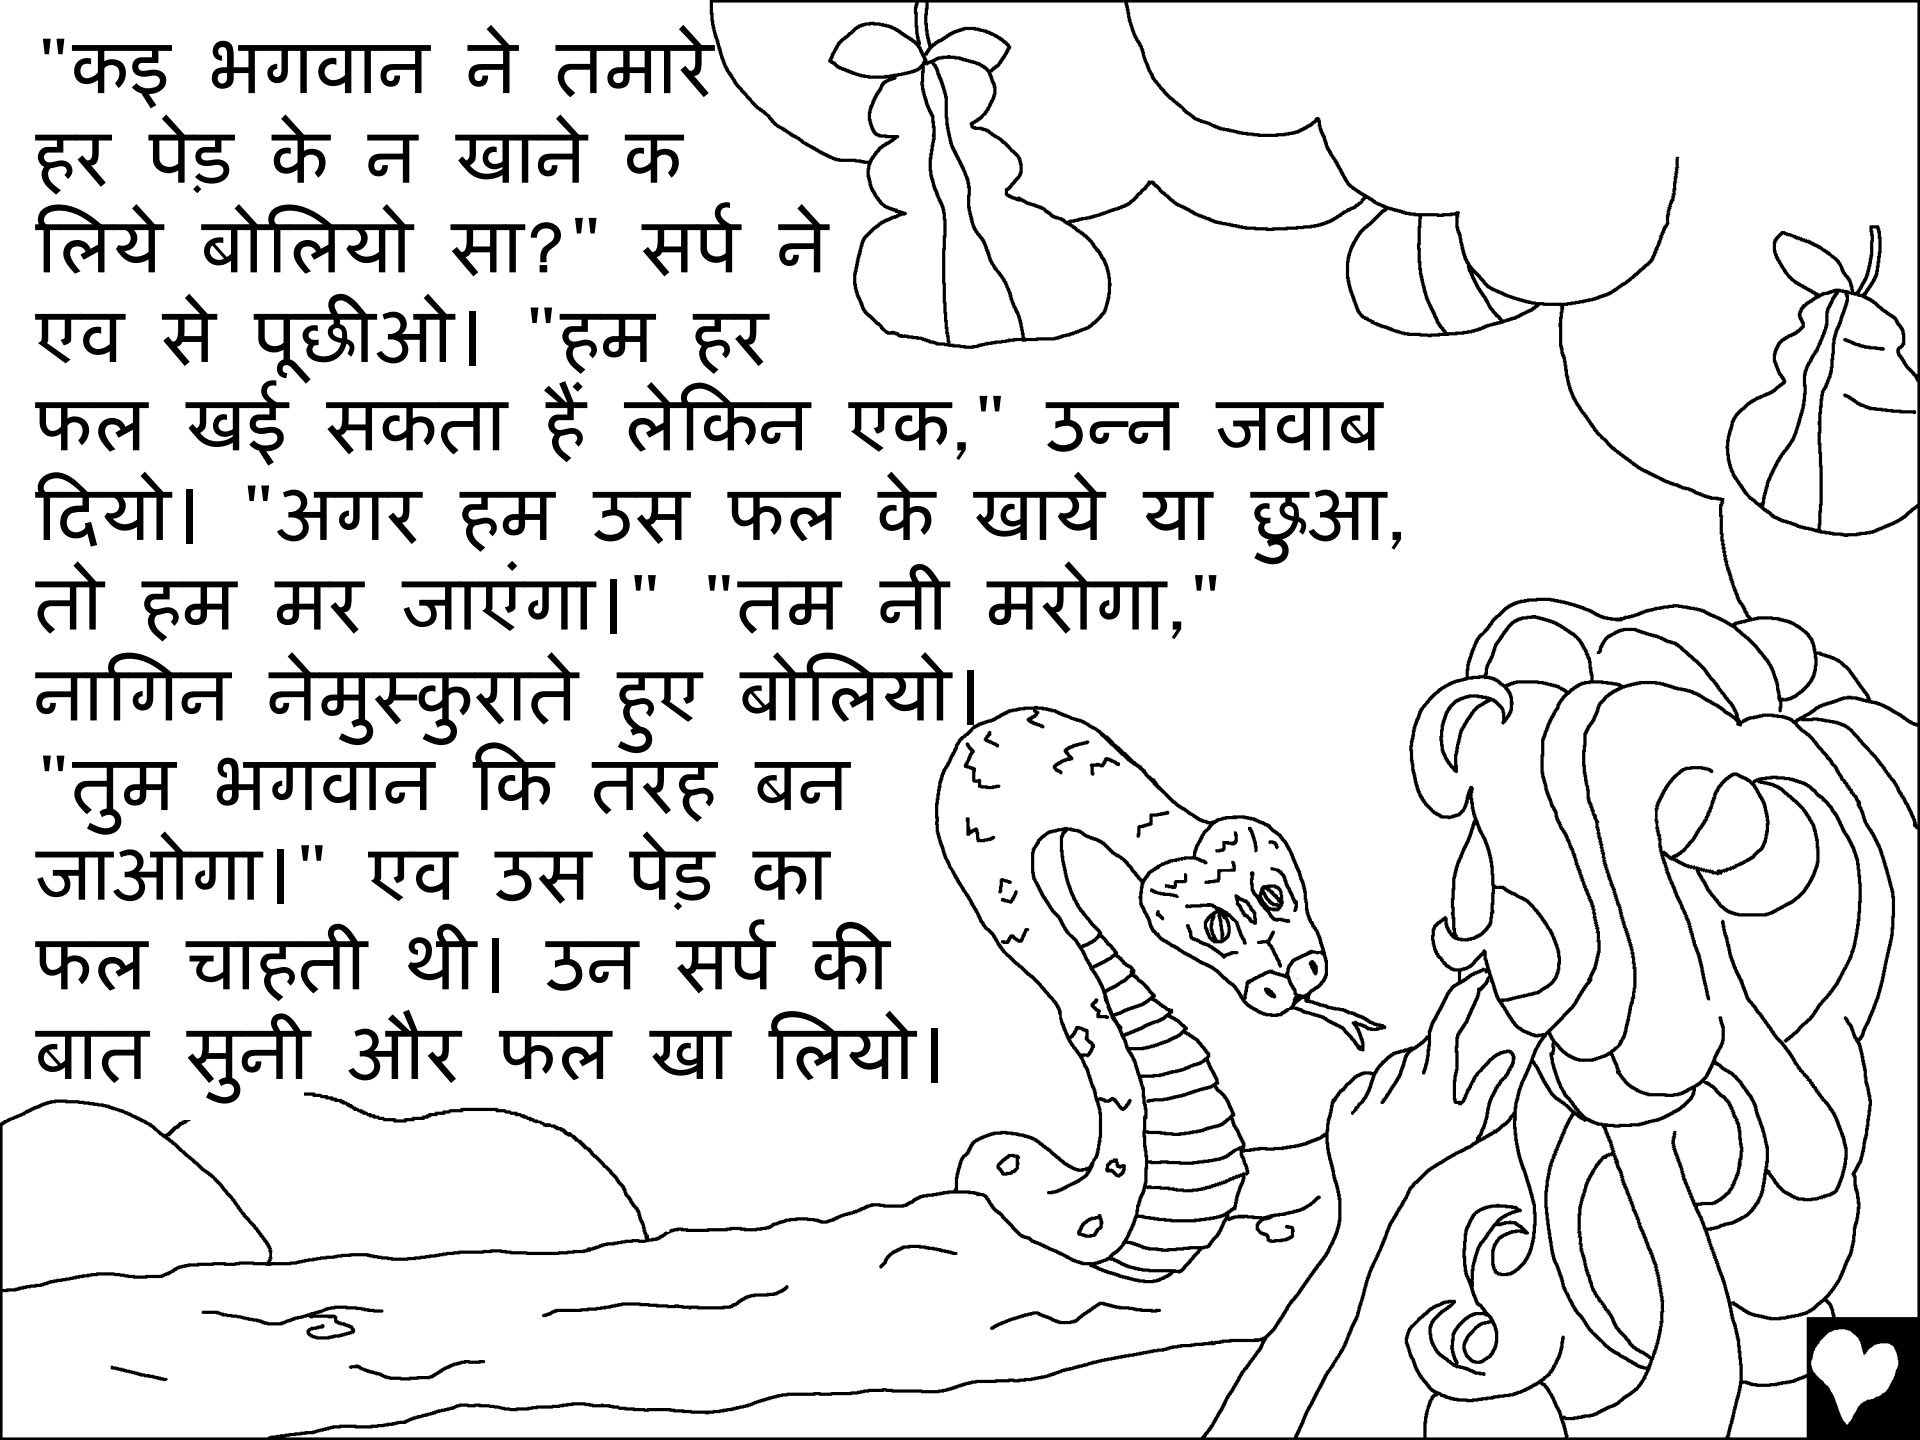 "कइ भगवान ने तमारे
हर पेड़ के न खाने क
लिये बोलियो सा?" सर्प ने
एव से पूछीओ। "हम हर
फल खई सकता हैं लेकिन एक," उन्न जवाब
दियो। "अगर हम उस फल के खाये या छुआ,
तो हम मर जाएंगा।" "तम नी मरोगा,"
नागिन नेमुस्कुराते हुए बोलियो।
"तुम भगवान कि तरह बन
जाओगा।" एव उस पेड़ का
फल चाहती थी। उन सर्प की
बात सुनी और फल खा लियो।